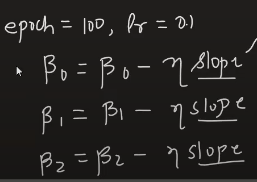 epoch = 100, lr = 0.1
β₀ = β₀ − η slope
β₁ = β₁ − η slope
β₂ = β₂ − η slope